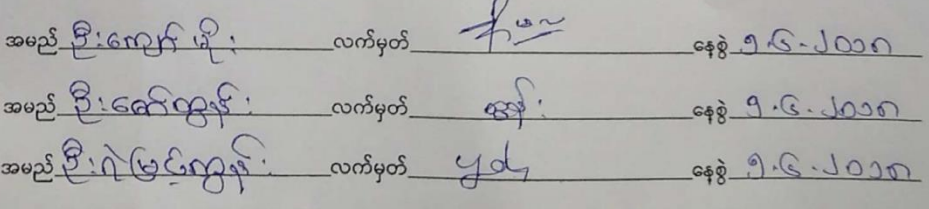 အမည် ဦးကျော်မိုး လက်မှတ် နေ့စွဲ ၅.၆.၂၀၁၈
အမည် ဦးဇော်ထွန်း လက်မှတ် ထွန်း နေ့စွဲ ၅.၆.၂၀၁၈
အမည် ဦးရဲမြင့်ထွန်း လက်မှတ် နေ့စွဲ ၅.၆.၂၀၁၈